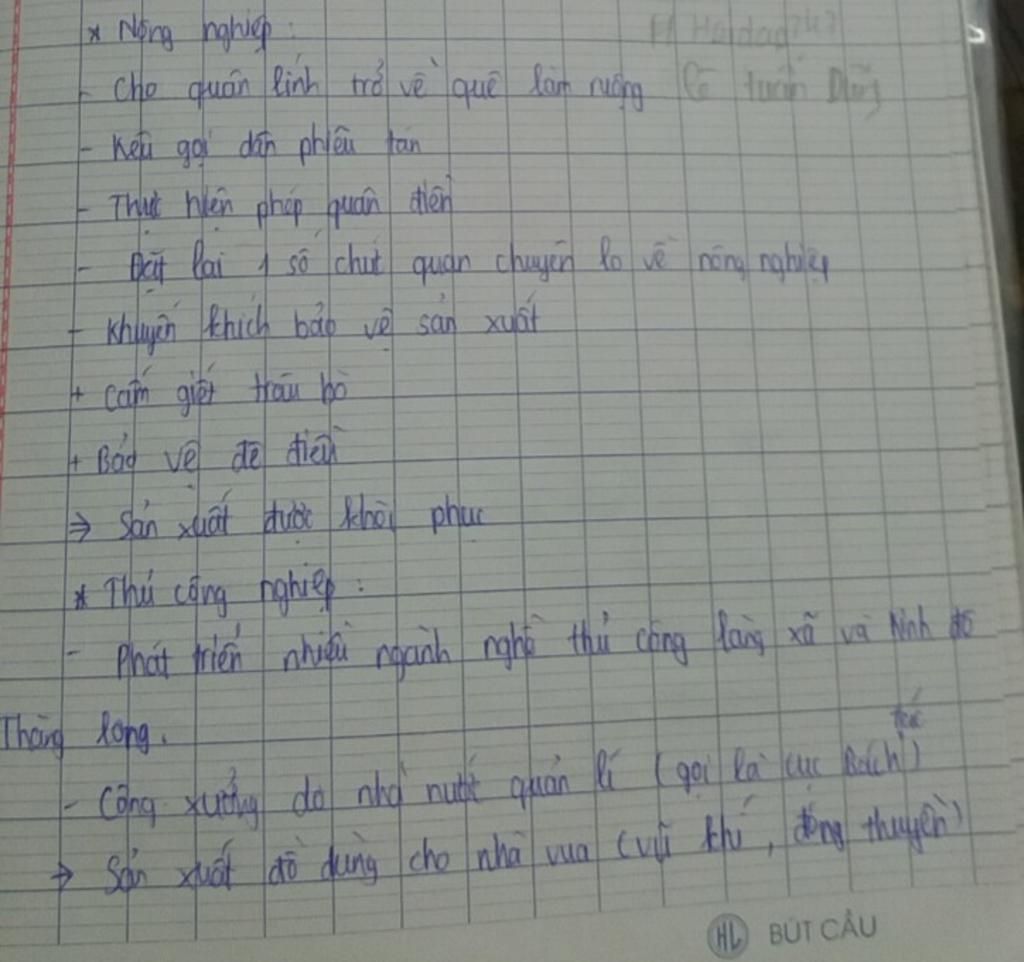 * Nông nghiệp:
- Cho quân lính trở về quê làm ruộng
- Kêu gọi dân phiêu tán
- Thực hiện phép quân điền
- Đặt lại 1 số chức quan chuyên lo về nông nghiệp
- Khuyến khích bảo vệ sản xuất
+ Cấm giết trâu bò
+ Bảo vệ đê điều
⇒ Sản xuất được khôi phục
* Thủ công nghiệp:
- Phát triển nhiều ngành nghề thủ công làng xã và kinh đô
Thăng Long.
- Công xưởng do nhà nước quản lí (gọi là cục Bách tác)
→ Sản xuất đồ dùng cho nhà vua (vũ khí, đóng thuyền)
HL BÚT CẦU